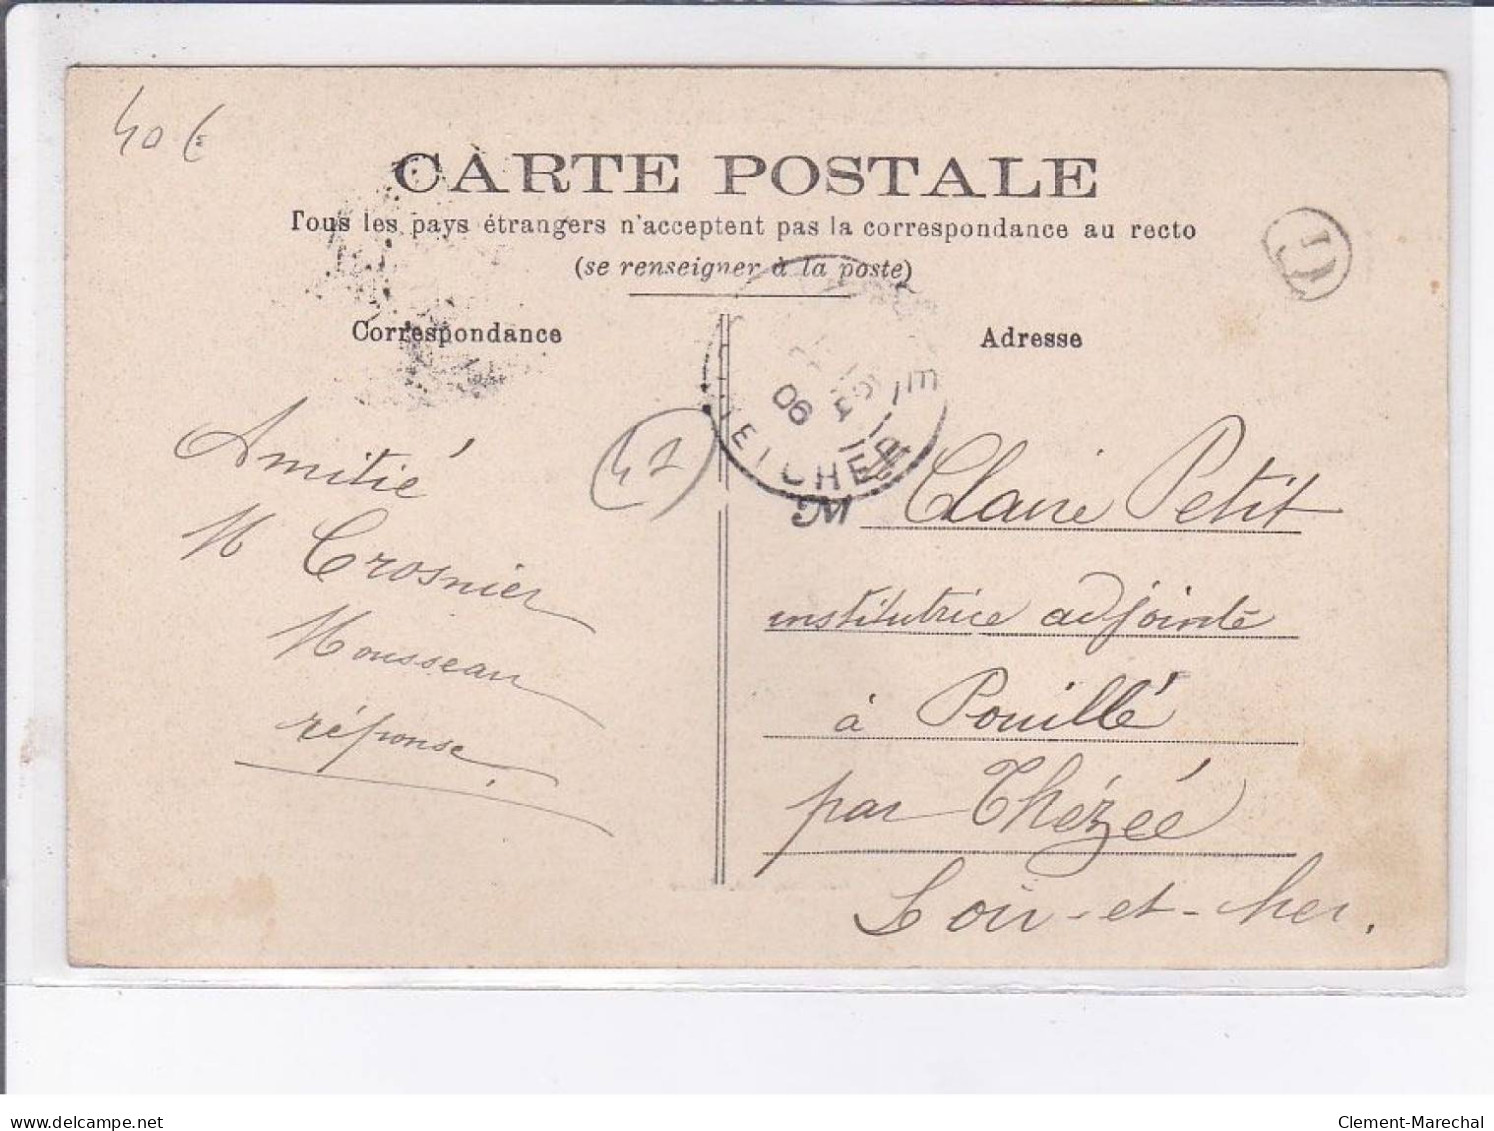 40 €
CARTE POSTALE
Tous les pays étrangers n'acceptent pas la correspondance au recto
(se renseigner à la poste)
Correspondance
Adresse
06
ET CHER
41
Amitié
M Crosnier
Mousseau
réponse
M
Claire Petit
institutrice adjointe
à Pouillé
par Thézée
Loir-et-Cher.
www.delcampe.net
Clement-Marechal